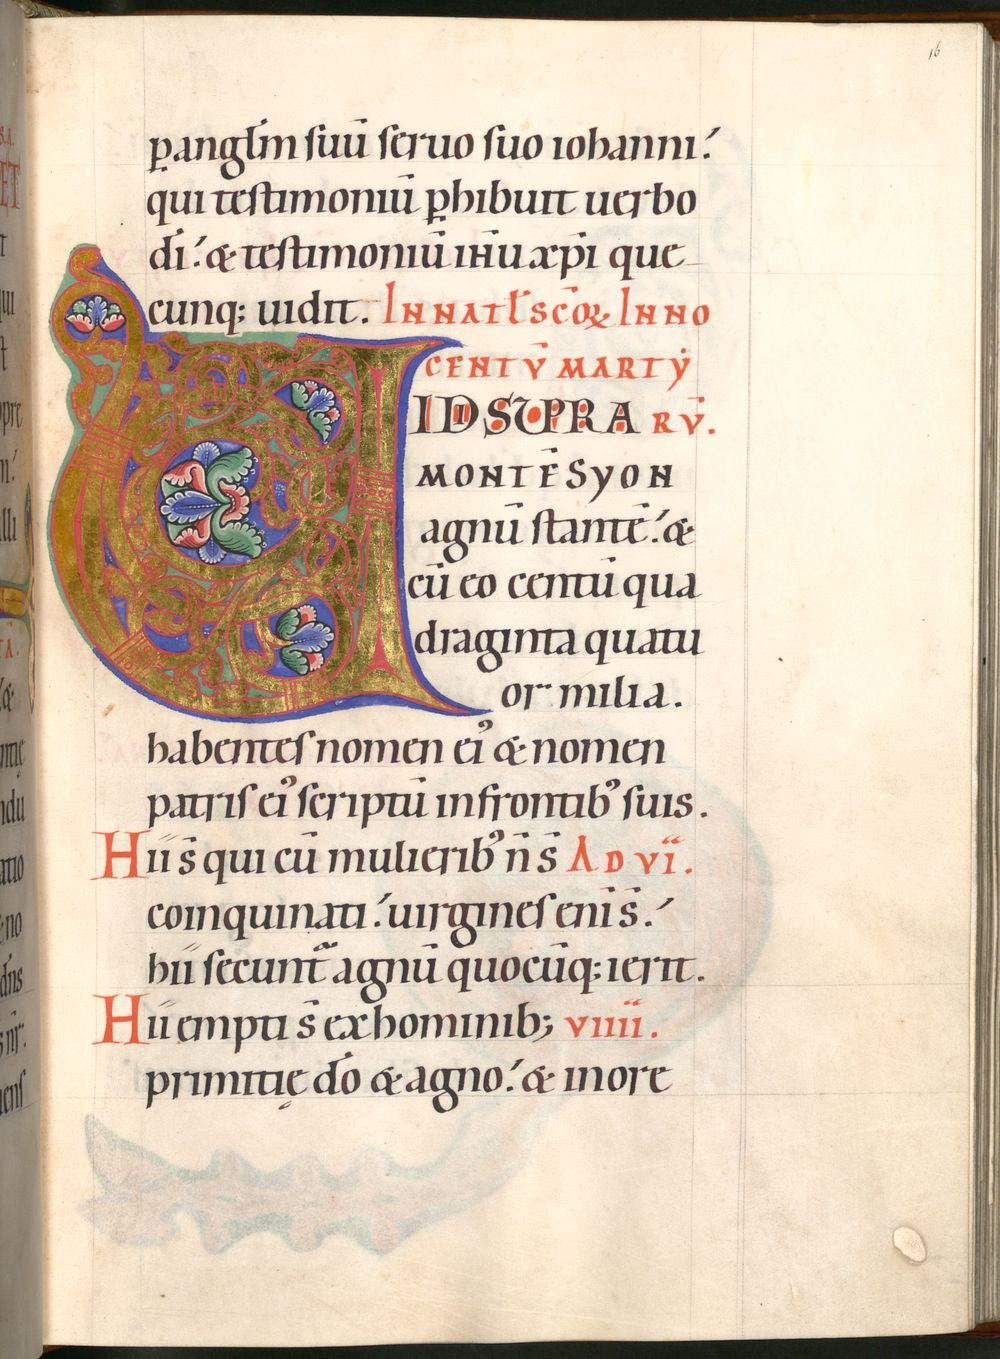 16
ꝑ angl̄m suū seruo suo iohanni.
qui testimoniū ꝑhibuit uerbo
dī. & testimoniū ih̄u xp̄i que
cunq; uidit. IN NAT̄L SC̄OꝜ INNO
CENTŪ MARTY
VIDI SUPRA RŪ.
MONTĒ SYON
agnū stantē. &
cū eo centū qua
draginta quatu
or milia.
habentes nomen eiꝰ & nomen
patris eiꝰ scriptū in frontibꝰ suis.
Hii s̄ qui cū mulieribꝰ n̄ s̄ AD VI.
coinquinati. uirgines eni s̄.
hii secunt̄ agnū quocūq; ierit.
Hii empti s̄ ex hominib; VIIII.
primitię dō & agno. & in ore